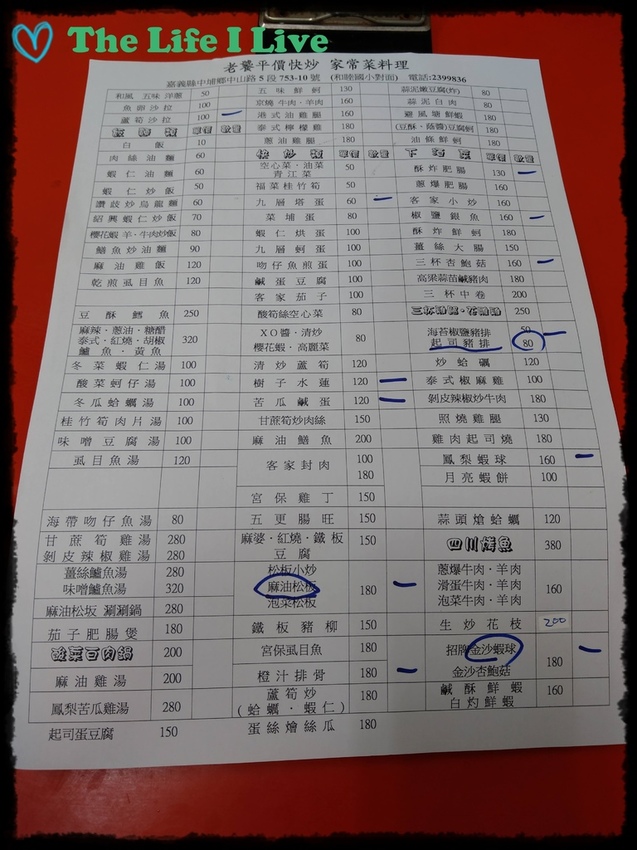 The Life I Live
老饕平價快炒 家常菜料理
嘉義縣中埔鄉中山路5段753-10號 (和睦國小對面) 電話:2399836
和風 五味 洋蔥 50 五味鮮蚵 130 蒜泥嫩豆腐(炸) 80
魚卵沙拉 100 京燒牛肉·羊肉 160 蒜泥白肉 80
蘆筍沙拉 100 港式油雞腿 180 避風塘鮮蝦 180
單價 數量 泰式檸檬雞 180 (豆酥·蔭醬)豆腐蚵 180
白飯 10 蔥油雞腿 180 油條鮮蚵 180
肉絲油麵 60 快炒類 單價 數量 下酒菜 單價 數量
蝦仁油麵 60 空心菜·油菜 青江菜 50 酥炸肥腸 130
蝦仁炒飯 50 福菜桂竹筍 50 蔥爆肥腸 160
讚歧炒烏龍麵 60 九層塔蛋 60 客家小炒 160
紹興蝦仁炒飯 70 菜埔蛋 80 椒鹽銀魚 160
櫻花蝦 羊·牛肉炒飯 80 蝦仁烘蛋 100 酥炸鮮蚵 180
鱔魚炒油麵 90 九層蚵蛋 100 薑絲大腸 150
麻油雞飯 120 吻仔魚煎蛋 100 三杯杏鮑菇 160
乾煎虱目魚 120 鹹蛋豆腐 100 高梁蒜苗鹹豬肉 180
客家茄子 100 三杯中卷 200
豆酥鱈魚 250 酸筍炒空心菜 80 250
麻辣·蔥油·糖醋 泰式·紅燒·胡椒 鱸魚·黃魚 320 XO醬·清炒 櫻花蝦·高麗菜 80 海苔椒鹽豬排 50
起司豬排 80
冬菜蝦仁湯 100 清炒蘆筍 120 炒蛤蠣 120
酸菜蚵仔湯 100 樹子水蓮 120 泰式椒麻雞 100
冬瓜蛤蠣湯 100 苦瓜鹹蛋 120 剝皮辣椒炒牛肉 180
桂竹筍肉片湯 100 甘蔗筍炒肉絲 150 照燒雞腿 130
味噌豆腐湯 100 麻油鱔魚 200 雞肉起司燒 180
虱目魚湯 120 客家封肉 100 180 鳳梨蝦球 160
月亮蝦餅 100
宮保雞丁 150
海帶吻仔魚湯 80 五更腸旺 150 蒜頭熗蛤蠣 120
甘蔗筍雞湯 280 麻婆·紅燒·鐵板 豆腐 150 四川烤魚 380
剝皮辣椒雞湯 280
薑絲鱸魚湯 280 松板小炒 蔥爆牛肉·羊肉
味噌鱸魚湯 320 麻油松板 180 滑蛋牛肉·羊肉 160
麻油松坂 涮涮鍋 180 泡菜松板 泡菜牛肉·羊肉
茄子肥腸煲 180 鐵板豬柳 150 生炒花枝 200
酸菜白肉鍋 200 宮保虱目魚 180 招牌金沙蝦球 180
麻油雞湯 200 橙汁排骨 180 金沙杏鮑菇
鳳梨苦瓜雞湯 280 蘆筍炒 (蛤蠣·蝦仁) 180 鹹酥鮮蝦 160
白灼鮮蝦
起司蛋豆腐 150 蛋絲燴絲瓜 180